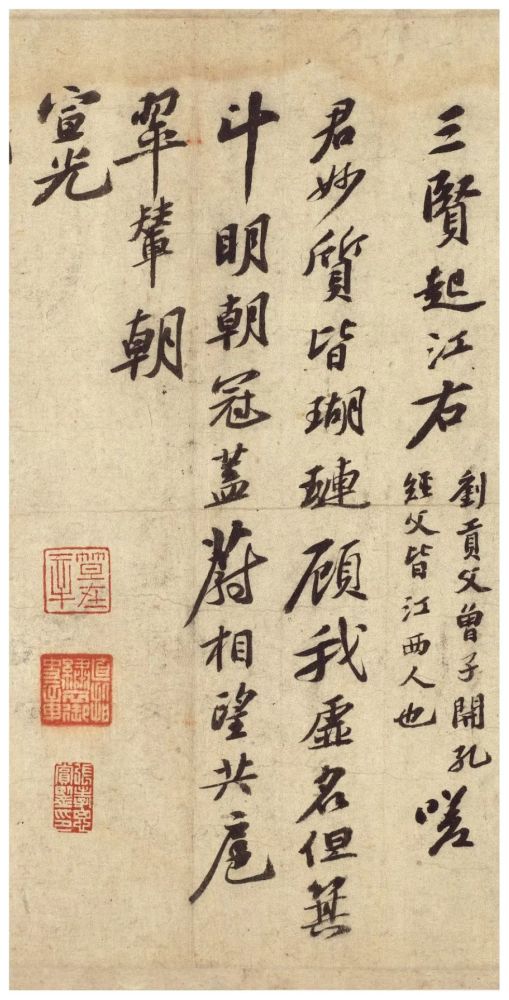 三賢起江右
劉貢父曾子開孔
經父皆江西人也
嗟
君妙質皆瑚璉顧我虛名但箕
斗明朝冠蓋蔚相望共扈
翠輦朝
宣光